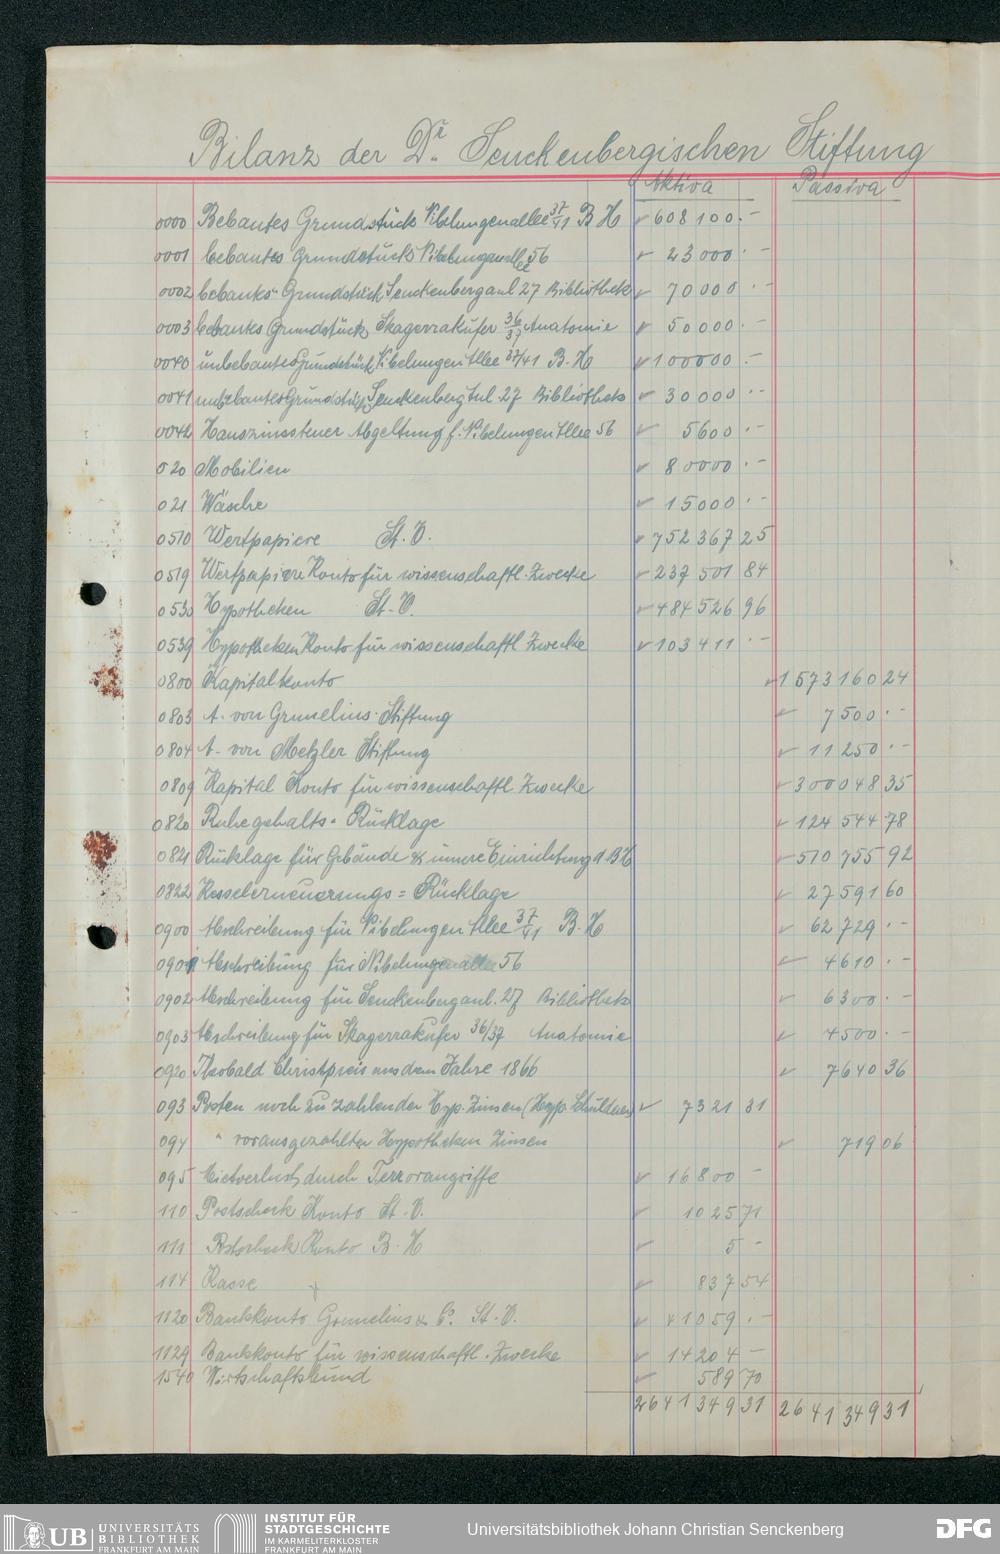 Bilanz der Dr. Senckenbergischen Stiftung
Aktiva Passiva
0000 Bebautes Grundstück Nibelungenallee 37/41 B H 608 100.-
0001 bebautes Grundstück Nibelungenallee 56 23 000.-
0002 bebautes Grundstück Senckenberganl 27 Bibliothek 70 000.-
0003 bebautes Grundstück Skagerrakufer 36/37 Anatomie 50 000.-
0040 unbebautes Grundstück Nibelungen Allee 37/41 B. H 100 000.-
0041 unbebautes Grundstück Senckenberg Anl. 27 Bibliothek 30 000.-
0042 Hauszinssteuer Abgeltung f. Nibelungen Allee 56 5600.-
020 Mobilien 80000.-
021 Wäsche 15000.-
0510 Wertpapiere St. V. 752 367 25
0519 Wertpapiere Konto für wissenschaftl. Zwecke 237 501 84
0530 Hypotheken St. V. 484 526 96
0539 Hypotheken Konto für wissenschaftl Zwecke 103 411.-
0800 Kapitalkonto 1 573 160 24
0803 A. von Grunelius-Stiftung 7 500.-
0804 A. von Metzler Stiftung 11 250.-
0809 Kapital Konto für wissenschaftl Zwecke 300 048 35
0820 Ruhegehalts-Rücklage 124 544 78
0821 Rücklage für Gebäude & innere Einrichtung d BH 510 755 92
0822 Kesselerneuerungs=Rücklage 27 591 60
0900 Abschreibung für Nibelungen Allee 37/41 B. H 62 729.-
0901 Abschreibung für Nibelungenallee 56 4610.-
0902 Abschreibung für Senckenberganl. 27 Bibliothek 6300.-
0903 Abschreibung für Skagerrakufer 36/37 Anatomie 4500.-
0920 Theobald Christpreis aus dem Jahre 1866 7640 36
093 Posten noch zu zahlenden Hyp. Zinsen (Hyp. Schuldner) 7 321 31
094 " vorausgezahlter Hypotheken Zinsen 719 06
095 Mietverlust durch Terrorangriffe 16 800 -
110 Postscheck Konto St. V. 10 25 71
111 Postscheck Konto B. H 5 -
114 Kasse 837 54
1120 Bankkonto Grunelius & Co. St. V. 41 059.-
1129 Bankkonto für wissenschaftl. Zwecke 14 204 -
1540 Wirtschaftsbund 589 70
2641 349 31 2641 349 31
UB UNIVERSITÄTS
BIBLIOTHEK
FRANKFURT AM MAIN
INSTITUT FÜR
STADTGESCHICHTE
IM KARMELITERKLOSTER
FRANKFURT AM MAIN
Universitätsbibliothek Johann Christian Senckenberg
DFG